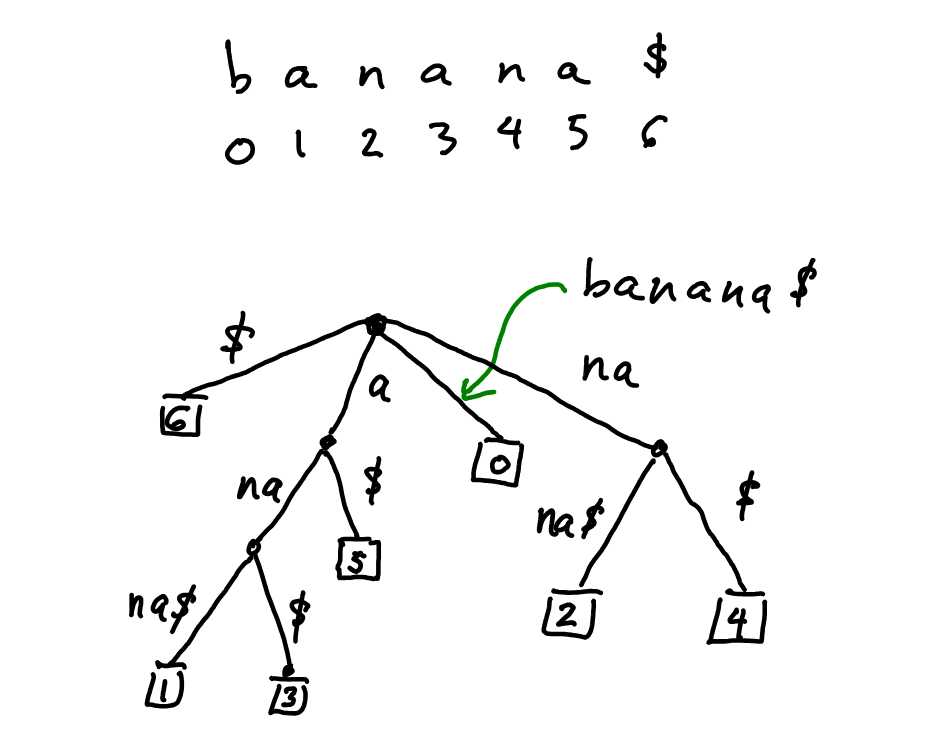 b a n a n a $
0 1 2 3 4 5 6
banana$
$
a
na
6
na
$
0
na$
$
5
na$
$
2
4
1
3